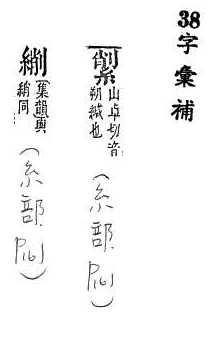 38字彙補
山卓切音
朔緘也
(糸部 P161)
集韻與
綃同
(糸部 P161)